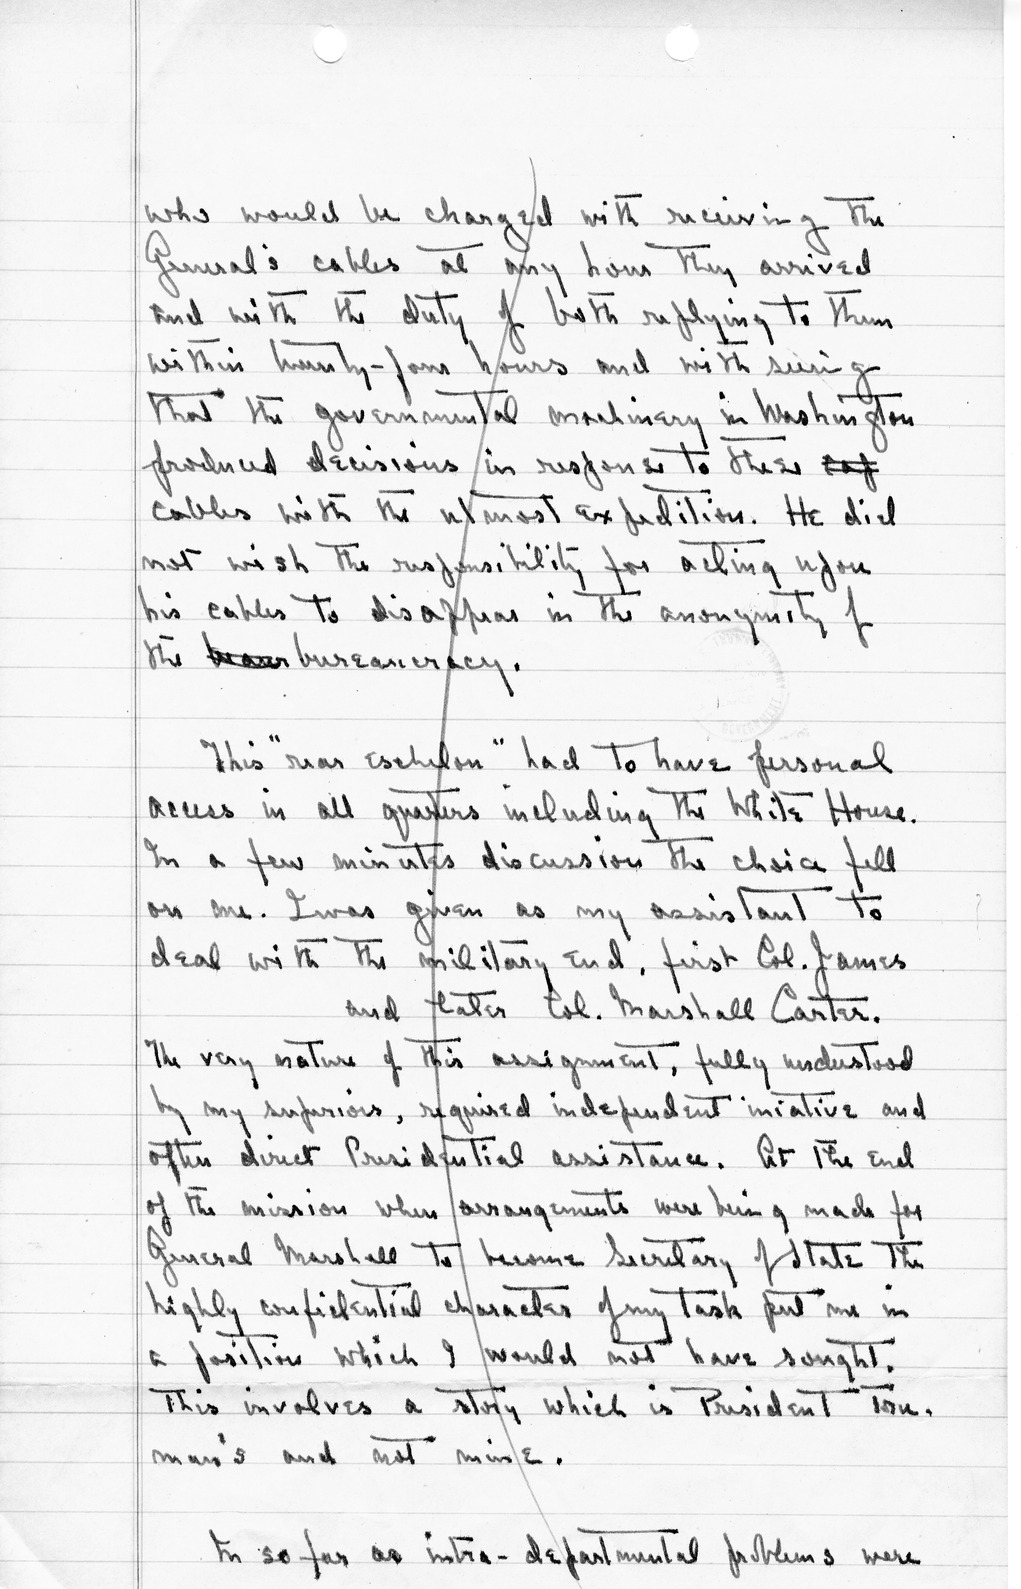 who would be charged with receiving the
General's cables at any hour they arrived
and with the duty of both replying to them
within twenty-four hours and with seeing
that the governmental machinery in Washington
produced decisions in response to these cap
cables with the utmost expedition. He did
not wish the responsibility for acting upon
his cables to disappear in the anonymity of
the bureancracy.
This "rear eschelon" had to have personal
access in all quarters including the White House.
In a few minutes discussion the choice fell
on me. I was given as my assistant to
deal with the military end, first Col. James
and later Col. Marshall Carter.
The very nature of this assignment, fully understood
by my superiors, required independent iniative and
often direct Presidential assistance. At the end
of the mission when arrangements were being made for
General Marshall to become Secretary of State the
highly confidential character of my task put me in
a position which I would not have sought.
This involves a story which is President Tru-
man's and not mine.
In so far as intra-departmental problems were